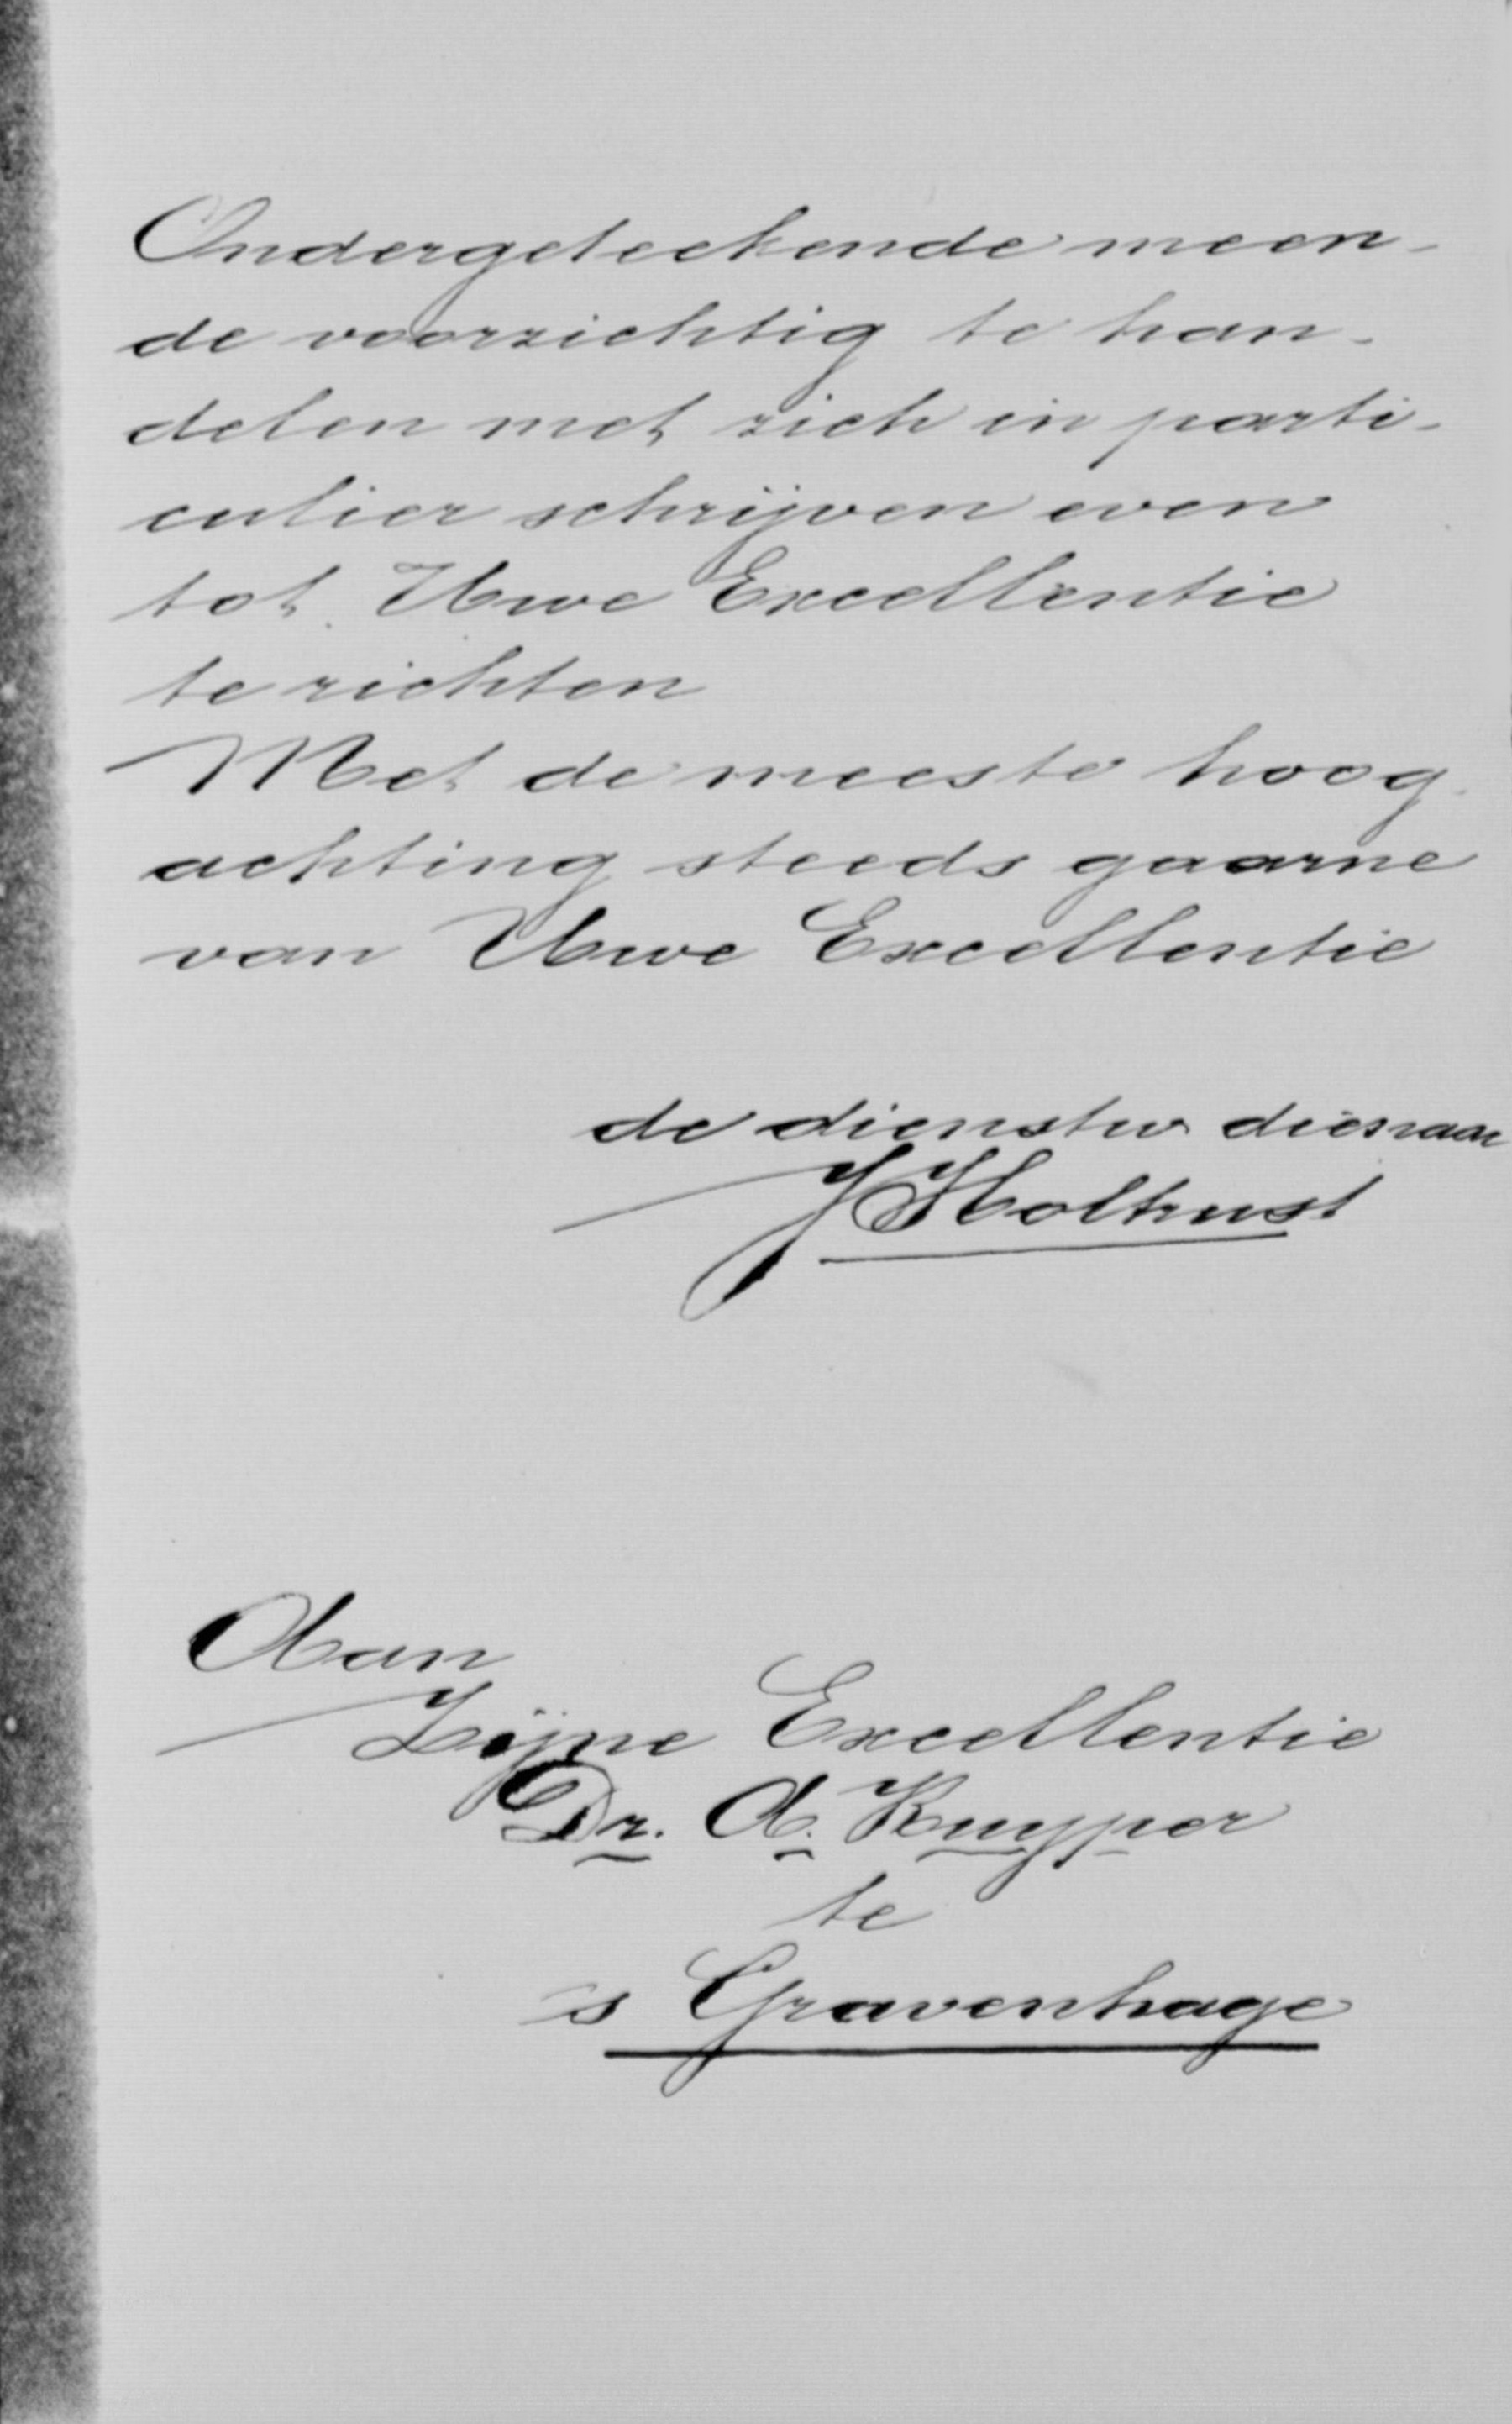 Ondergeteekende meen-
de voorzichtig te han-
delen met zich in parti-
culier schrijven even
tot Uwe Excellentie
te richten
Met de meeste hoog
achting steeds gaarne
van Uwe Excellentie
de dienstw dienaar
J Holthust
Aan
Zijne Excellentie
Dr. A. Kuyper
te
s Gravenhage